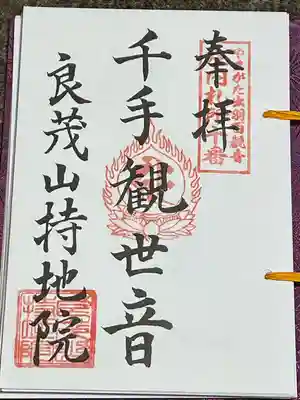 奉拝
千手観世音
良茂山持地院